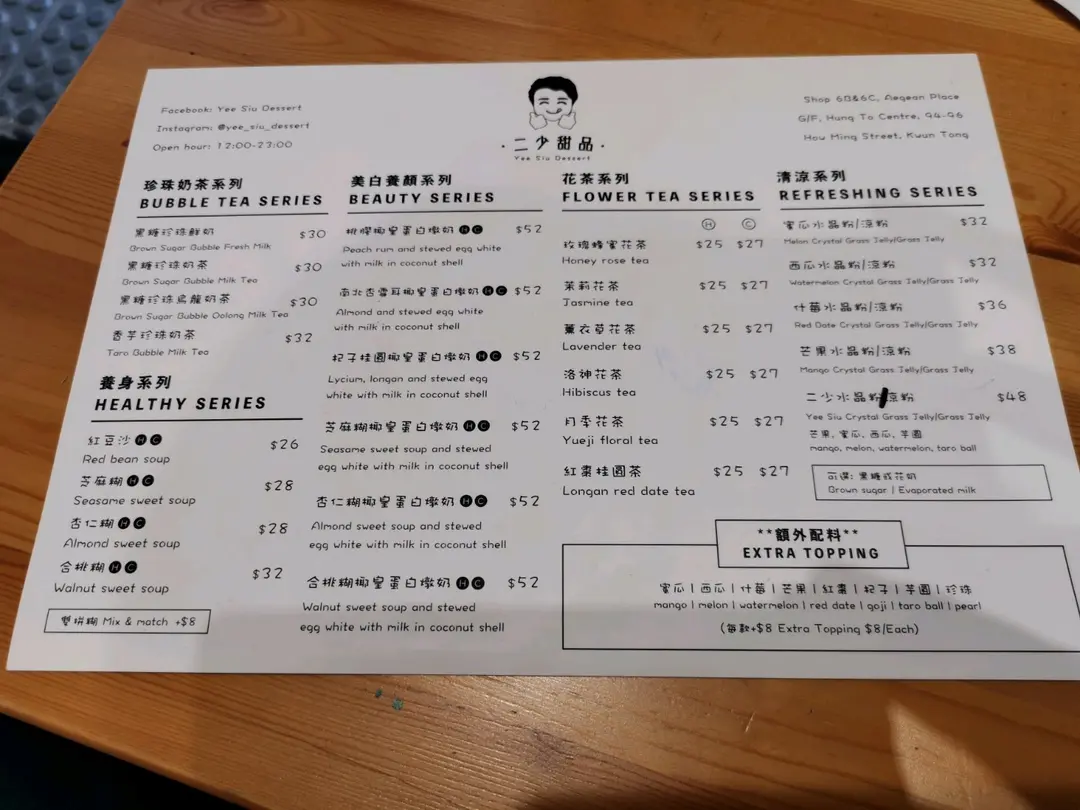 Facebook: Yee Siu Dessert
Instagram: @yee_siu_dessert
Open hour: 12:00-23:00
·二少甜品·
Yee Siu Dessert
Shop 6B&6C, Aegean Place
G/F, Hung To Centre, 94-96
How Ming Street, Kwun Tong
珍珠奶茶系列
BUBBLE TEA SERIES
黑糖珍珠鮮奶 $30
Brown Sugar Bubble Fresh Milk
黑糖珍珠奶茶 $30
Brown Sugar Bubble Milk Tea
黑糖珍珠烏龍奶茶 $30
Brown Sugar Bubble Oolong Milk Tea
香芋珍珠奶茶 $32
Taro Bubble Milk Tea
養身系列
HEALTHY SERIES
紅豆沙 H C $26
Red bean soup
芝麻糊 H C $28
Seasame sweet soup
杏仁糊 H C $28
Almond sweet soup
合桃糊 H C $32
Walnut sweet soup
雙拼糊 Mix & match +$8
美白養顏系列
BEAUTY SERIES
桃膠椰皇蛋白燉奶 H C $52
Peach rum and stewed egg white
with milk in coconut shell
南北杏雪耳椰皇蛋白燉奶 H C $52
Almond and stewed egg white
with milk in coconut shell
杞子桂圓椰皇蛋白燉奶 H C $52
Lycium, longan and stewed egg
white with milk in coconut shell
芝麻糊椰皇蛋白燉奶 H C $52
Seasame sweet soup and stewed
egg white with milk in coconut shell
杏仁糊椰皇蛋白燉奶 H C $52
Almond sweet soup and stewed
egg white with milk in coconut shell
合桃糊椰皇蛋白燉奶 H C $52
Walnut sweet soup and stewed
egg white with milk in coconut shell
花茶系列
FLOWER TEA SERIES
H C
玫瑰蜂蜜花茶 $25 $27
Honey rose tea
茉莉花茶 $25 $27
Jasmine tea
薰衣草花茶 $25 $27
Lavender tea
洛神花茶 $25 $27
Hibiscus tea
月季花茶 $25 $27
Yueji floral tea
紅棗桂圓茶 $25 $27
Longan red date tea
清涼系列
REFRESHING SERIES
蜜瓜水晶粉/涼粉 $32
Melon Crystal Grass Jelly/Grass Jelly
西瓜水晶粉/涼粉 $32
Watermelon Crystal Grass Jelly/Grass Jelly
什莓水晶粉/涼粉 $36
Red Date Crystal Grass Jelly/Grass Jelly
芒果水晶粉/涼粉 $38
Mango Crystal Grass Jelly/Grass Jelly
二少水晶粉/涼粉 $48
Yee Siu Crystal Grass Jelly/Grass Jelly
芒果, 蜜瓜, 西瓜, 芋圓
mango, melon, watermelon, taro ball
可選: 黑糖或花奶
Brown sugar | Evaporated milk
**額外配料**
EXTRA TOPPING
蜜瓜 | 西瓜 | 什莓 | 芒果 | 紅棗 | 杞子 | 芋圓 | 珍珠
mango | melon | watermelon | red date | goji | taro ball | pearl
(每款+$8 Extra Topping $8/Each)